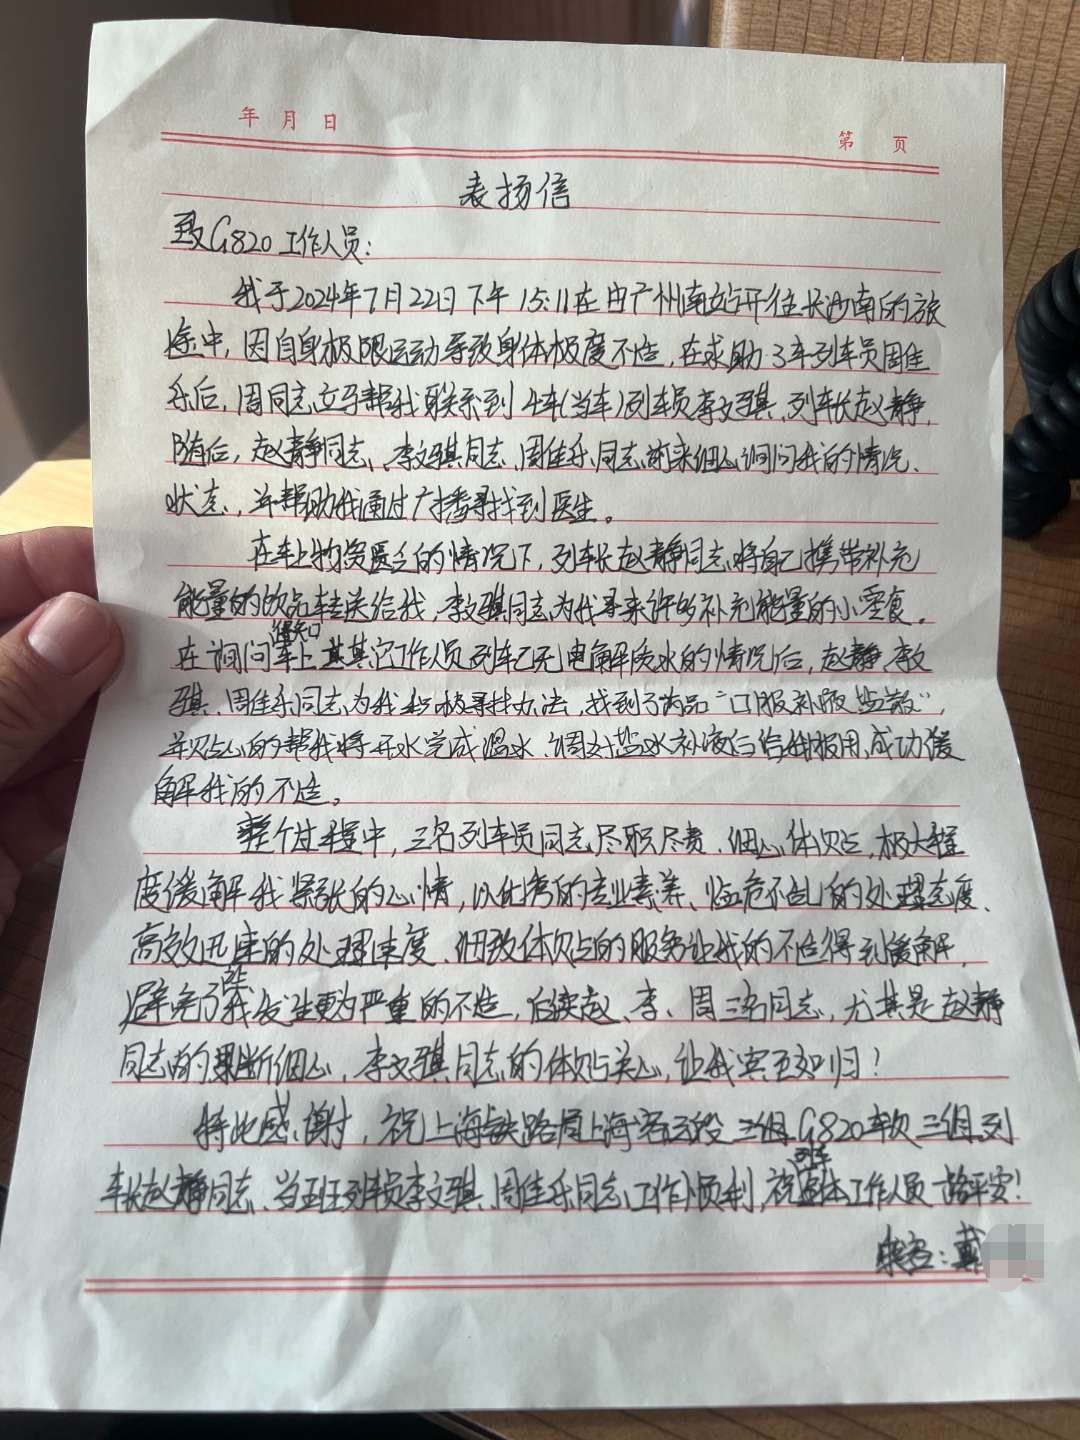 年 月 日
第 页
表扬信
致G820工作人员:
我于2024年7月22日下午15:11在由广州南站开往长沙南的旅
途中,因自身极限运动导致身体极度不适,在求助3车列车员周佳
乐后,周同志立马帮我联系到4车(当车)列车员李文骐、列车长赵静,
随后,赵静同志、李文骐同志、周佳乐同志前来细心询问我的情况、
状态,并帮助我通过广播寻找到医生。
在车上物资匮乏的情况下,列车长赵静同志将自己携带补充
能量的饮品转送给我,李文骐同志为我寻来许多补充能量的小零食。
得知
在询问车上其他工作人员列车已无电解质水的情况后,赵静、李文
骐、周佳乐同志为我积极寻找办法,找到了药品“口服补液盐散”,
并贴心的帮我将开水完成温水、调对盐水补液后给我服用,成功缓
解我的不适。
整个过程中,三名列车员同志尽职尽责、细心体贴,极大程
度缓解我紧张的心情,以优秀的专业素养、临危不乱的处理态度、
高效迅速的处理速度、细致体贴的服务让我的不适得到缓解,
避免了我发生更为严重的不适,后续赵、李、周三名同志,尤其是赵静
同志的果断细心,李文骐同志的体贴关心,让我宾至如归!
特此感谢,祝上海铁路局上海客运段三组G820车次三组列
列车
车长赵静同志、当班列车员李文骐、周佳乐同志工作顺利,祝工作人员一路平安!
乘客:戴